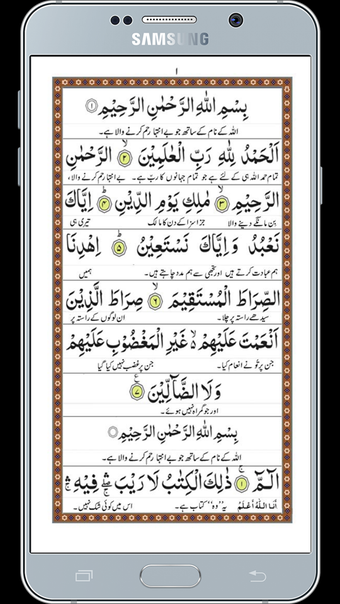 SAMSUNG
۱
بِسْمِ اللّٰهِ الرَّحْمٰنِ الرَّحِيْمِ ۝۱
اللہ کے نام کے ساتھ جو بے انتہا رحم کرنے والا ہے۔
اَلْحَمْدُ لِلّٰهِ رَبِّ الْعٰلَمِيْنَ ۝۲ الرَّحْمٰنِ
تمام حمد اللہ ہی کے لئے ہے جو تمام جہانوں کا ربّ ہے۔ بے انتہا رحم کرنے والا،
الرَّحِيْمِ ۝۳ مٰلِكِ يَوْمِ الدِّيْنِ ۝۴ اِيَّاكَ
بن مانگے دینے والا جزا سزا کے دن کا مالک تیری ہی
نَعْبُدُ وَ اِيَّاكَ نَسْتَعِيْنُ ۝۵ اِهْدِنَا
ہم عبادت کرتے ہیں اور تجھی سے ہم مدد چاہتے ہیں۔ ہمیں
الصِّرَاطَ الْمُسْتَقِيْمَ ۝۶ صِرَاطَ الَّذِيْنَ
سیدھے راستہ پر چلا۔ ان لوگوں کے راستہ پر
اَنْعَمْتَ عَلَيْهِمْ ۙ غَيْرِ الْمَغْضُوْبِ عَلَيْهِمْ
جن پر تُو نے انعام کیا۔ جن پر غضب نہیں کیا گیا
وَلَا الضَّآلِّيْنَ ۝۷
اور جو گمراہ نہیں ہوئے۔
بِسْمِ اللّٰهِ الرَّحْمٰنِ الرَّحِيْمِ
اللہ کے نام کے ساتھ جو بے انتہا رحم کرنے والا ہے۔
الٓمّٓ ۝۱ ذٰلِكَ الْكِتٰبُ لَا رَيْبَ ۛ فِيْهِ ۛ
اَنَا اللّٰهُ اَعْلَمُ یہ ’’وہ‘‘ کتاب ہے۔ اس میں کوئی شک نہیں۔